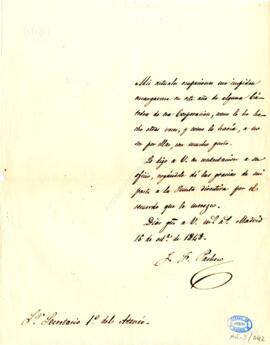 Mis actuales ocupaciones me impiden
encargarme en este año de alguna Cá-
tedra de esa Corporacion, como lo he he-
cho otras veces, y como lo haria, a no
ser por ellas, con mucho gusto.
Lo digo a V. en contestacion a su
oficio, rogándole dé las gracias de mi
parte a la Junta directiva por el
recuerdo que la merezco.
Dios gue. a V. ms. as. Madrid
16 de oct.e de 1843.
J. F. Pacheco
Sr. Secretario 1º del Ateneo.